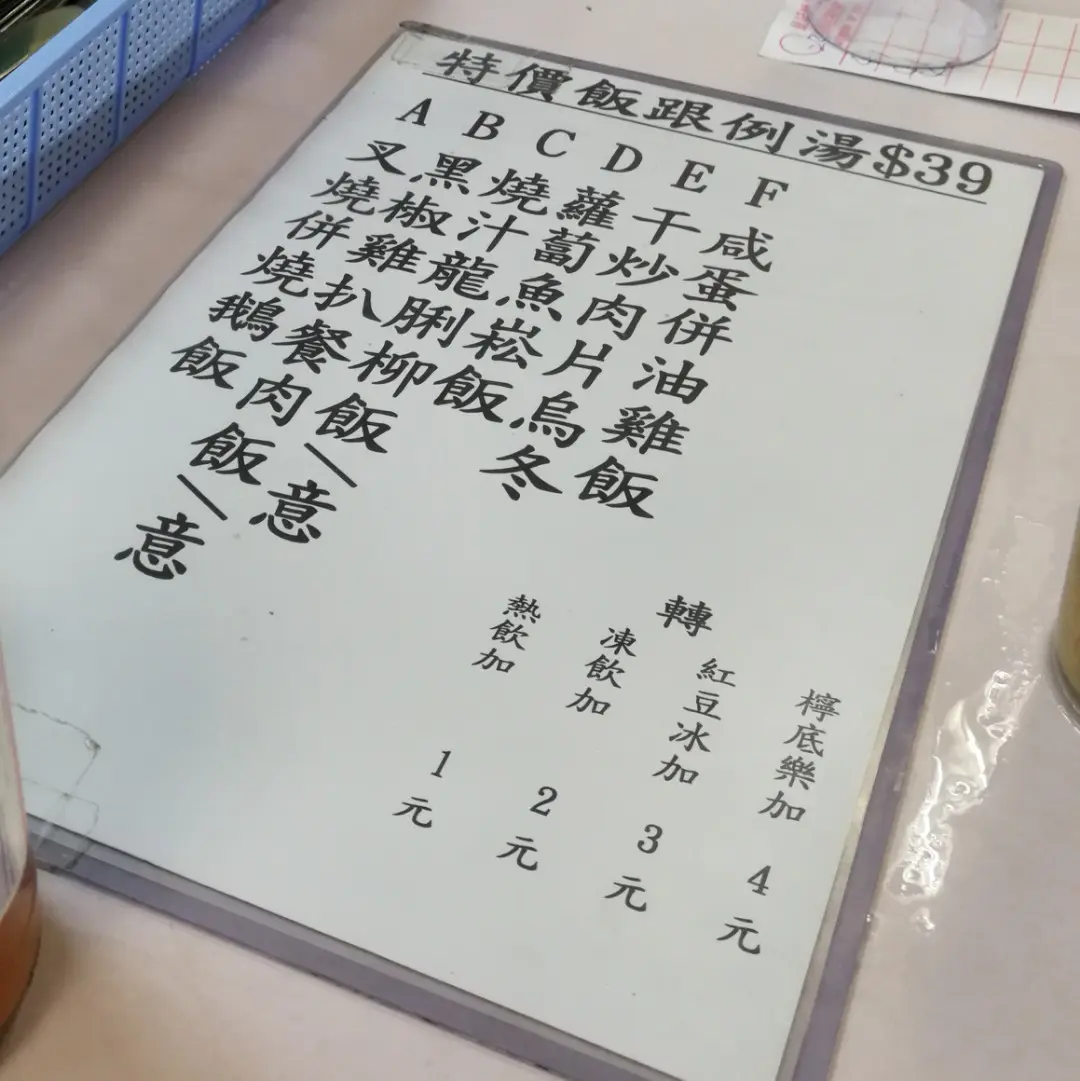 特價飯跟例湯$39
A 叉燒併燒鵝飯
B 黑椒雞扒餐肉飯/意
C 燒汁龍脷柳飯/意
D 蘿蔔魚崧飯
E 干炒肉片烏冬
F 咸蛋併油雞飯
轉
熱飲加 1元
凍飲加 2元
紅豆冰加 3元
檸底樂加 4元